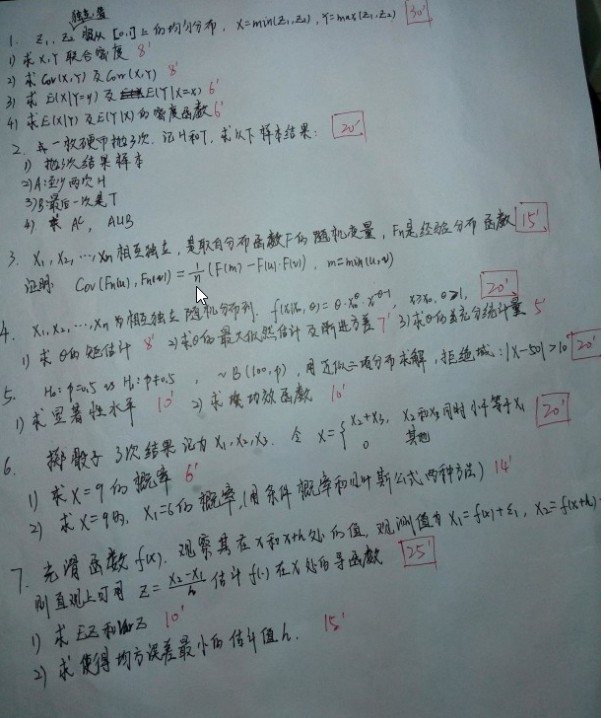 独立且
1. Z₁, Z₂ 服从 [0,1] 上的均匀分布, X=min(Z₁,Z₂), Y=max(Z₁,Z₂) 30'
1) 求 X,Y 联合密度 8'
2) 求 Cov(X,Y) 及 Corr(X,Y) 8'
3) 求 E(X|Y=y) 及 E(Y|X=x) 6'
4) 求 E(X|Y) 及 E(Y|X) 的密度函数 6'
2. 一枚硬币抛3次. 记H和T, 求以下样本结果: 20'
1) 抛3次结果样本
2) A:至少两次H
3) B:最后一次是T
4) 求 Aᶜ, A∪B
3. X₁, X₂, ⋯, Xn 相互独立, 是取自分布函数F的随机变量, Fn是经验分布函数 15'
证明: Cov(Fn(u), Fn(v)) = 1/n (F(m) - F(u)·F(v)), m=min(u,v)
4. X₁, X₂, ⋯, Xn 为相互独立随机分布列. f(x|x₀,θ) = θ·x₀^θ·x^-θ-1, x≥x₀, θ>1, 20'
1) 求θ的矩估计 8' 2) 求θ的最大似然估计及渐进方差 7' 3) 求θ的充分统计量 5'
5. H₀: P=0.5 vs H₁: P≠0.5, ~B(100,p), 用近似二项分布求解, 拒绝域: |X-50|>10 20'
1) 求显著性水平 10' 2) 求功效函数 10'
6. 掷骰子3次结果记为 X₁, X₂, X₃. 令 X={ X₂+X₃, X₂和X₃同时小于等于X₁ 20'
0 其它
1) 求 X=9 的概率 6'
2) 求 X=9时, X₁=6的概率, (用条件概率和贝叶斯公式两种方法) 14'
7. 光滑函数 f(x). 观察其在 x 和 x+h 处的值, 观测值为 X₁=f(x)+ε₁, X₂=f(x+h)
则直观上可用 Z = (X₂-X₁)/h 估计 f(·) 在 x 处的导函数 25'
1) 求 EZ 和 VarZ 10'
2) 求使得均方误差最小的估计值 h. 15'